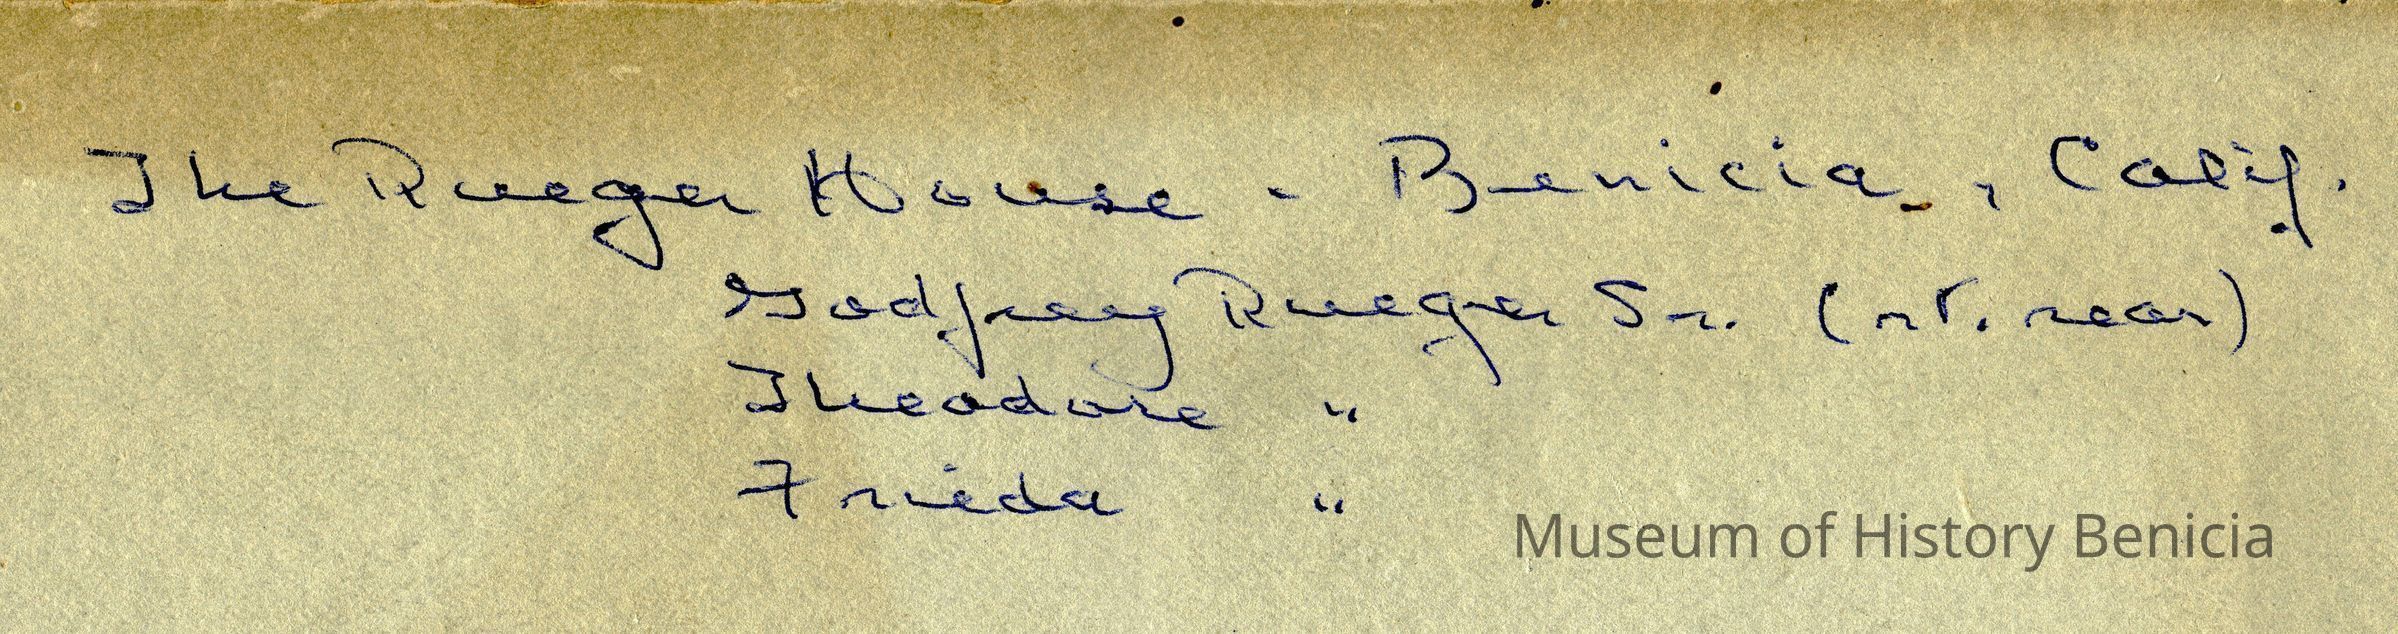 The Rueger House - Benicia, Calif.
Godfrey Rueger Sr. (rt. rear)
Theodore "
Frieda "
Museum of History Benicia